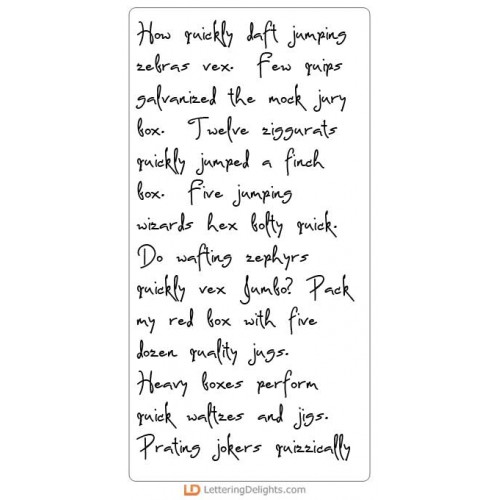 How quickly daft jumping
zebras vex. Few quips
galvanized the mock jury
box. Twelve ziggurats
quickly jumped a finch
box. Five jumping
wizards hex bolty quick.
Do wafting zephyrs
quickly vex Jumbo? Pack
my red box with five
dozen quality jugs.
Heavy boxes perform
quick waltzes and jigs.
Prating jokers quizzically
LD LetteringDelights.com